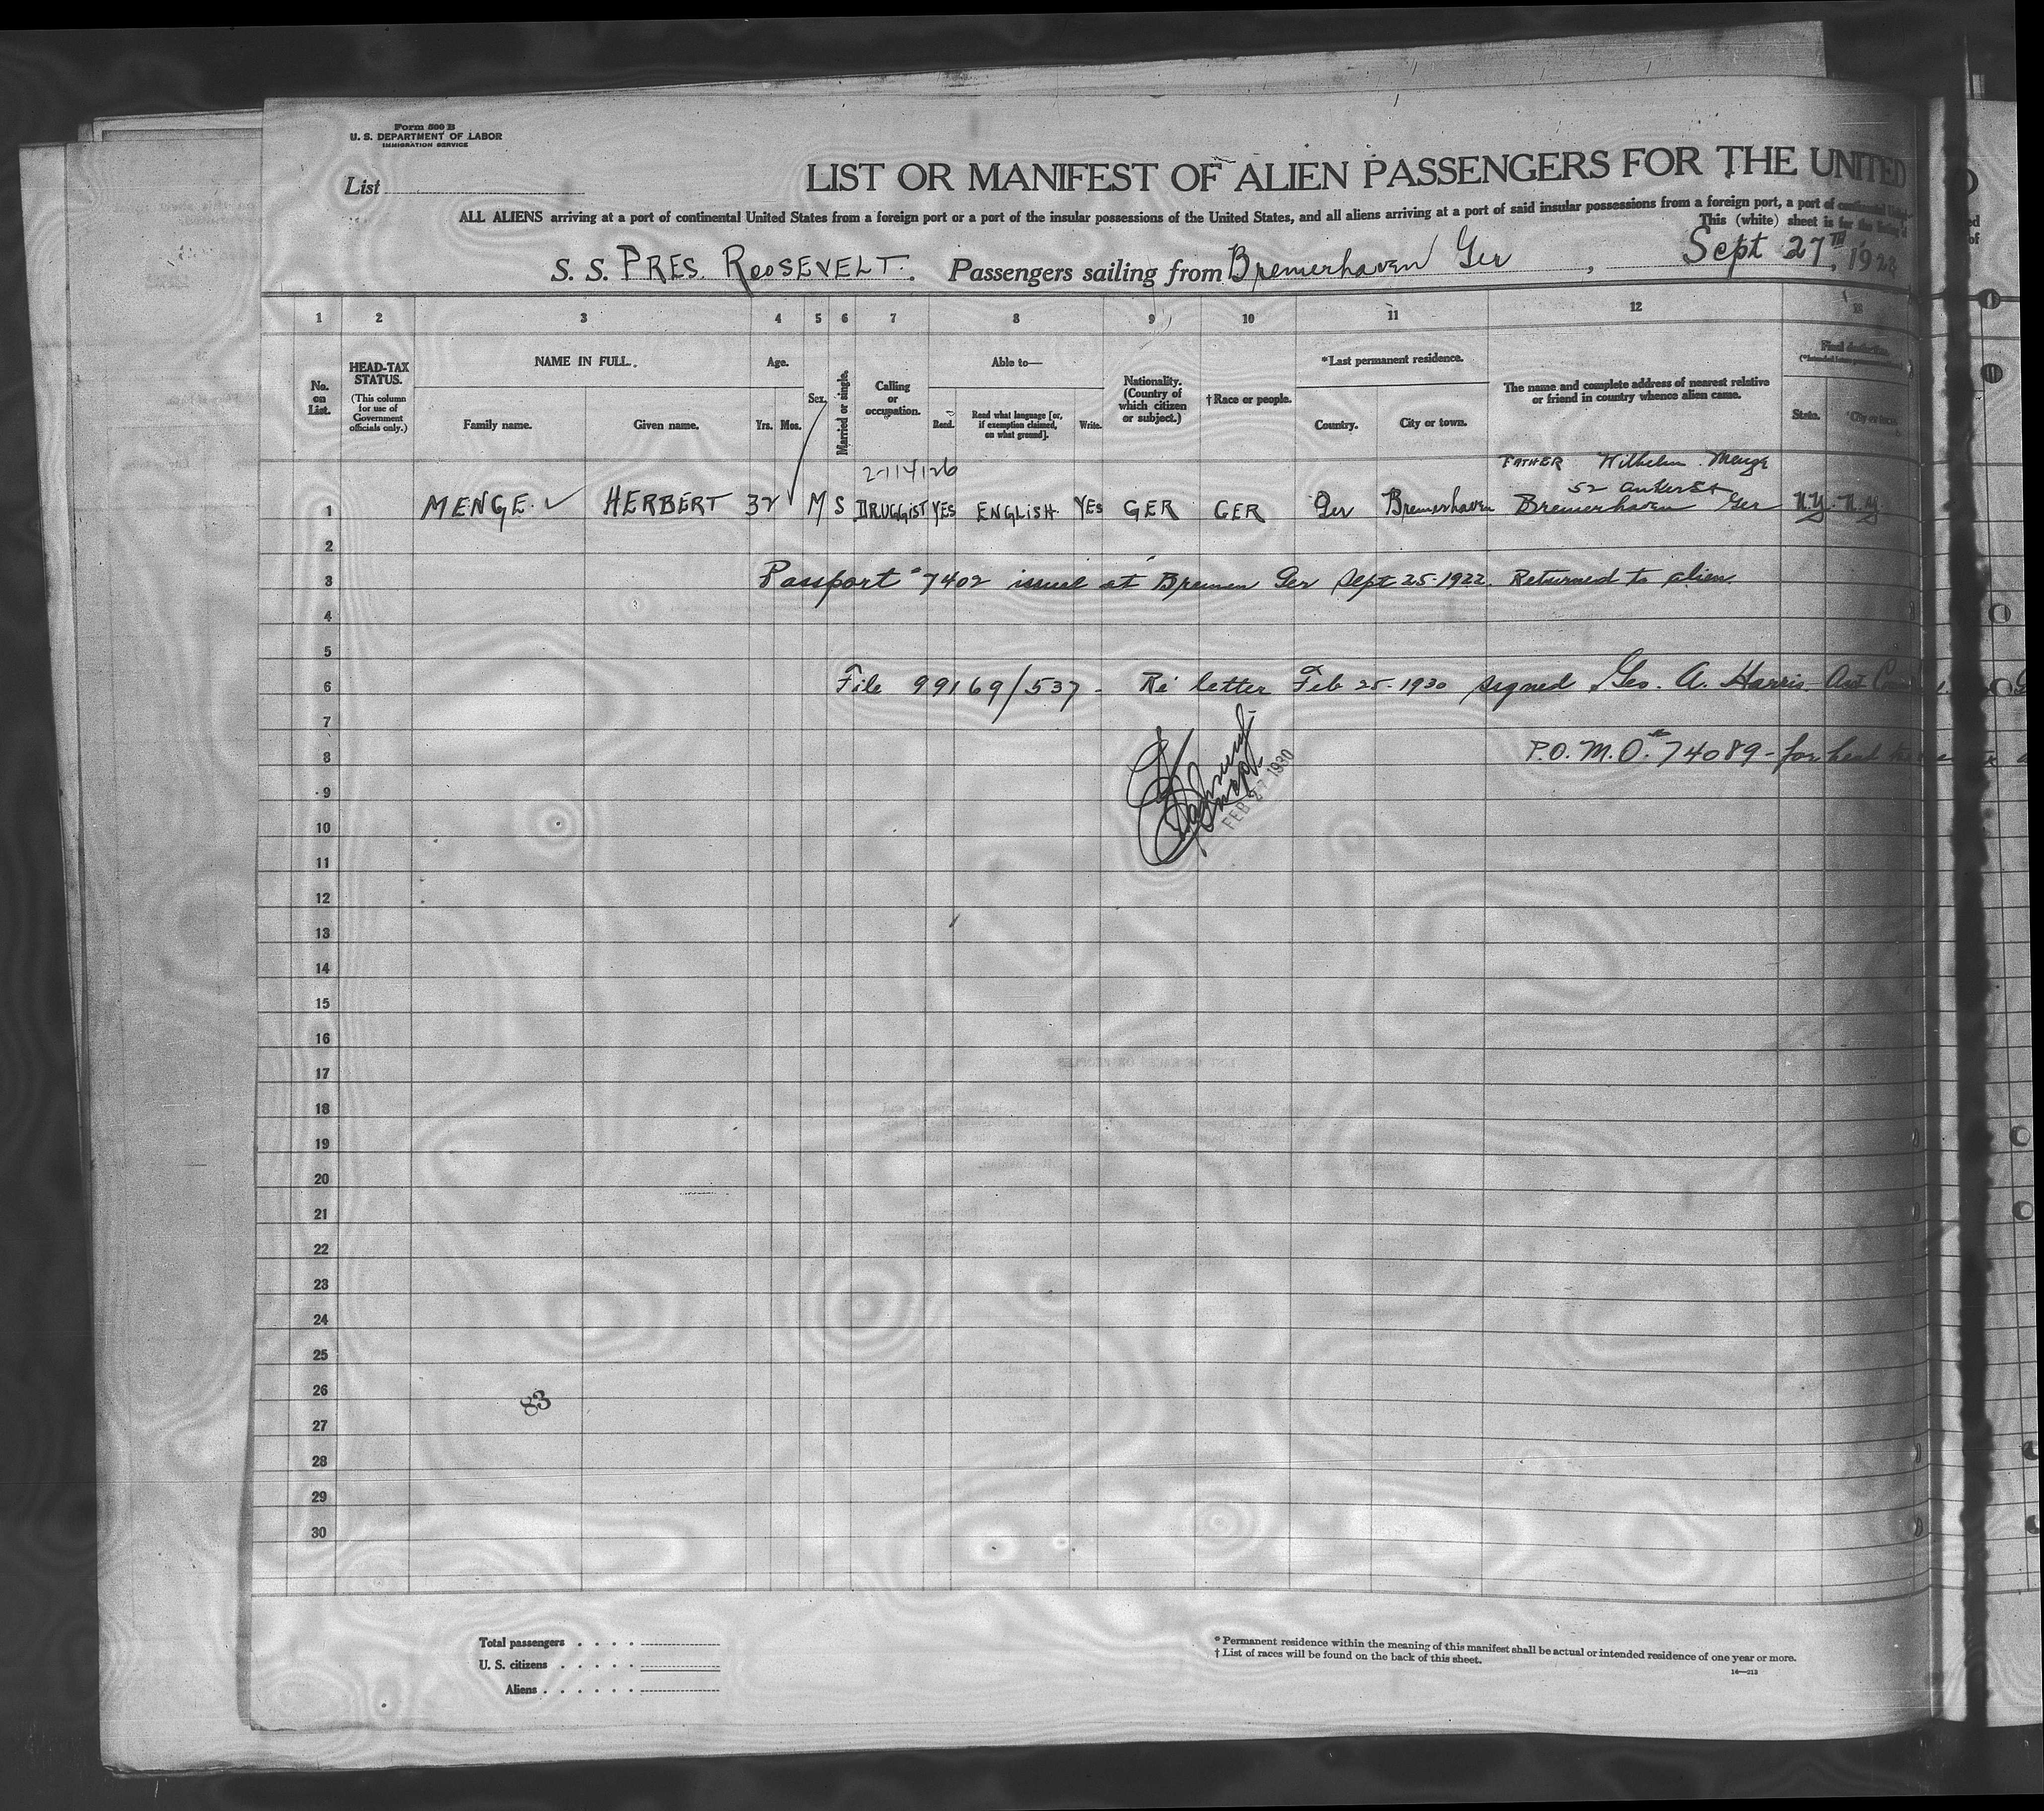 Form 500 B
U. S. DEPARTMENT OF LABOR
IMMIGRATION SERVICE
List
LIST OR MANIFEST OF ALIEN PASSENGERS FOR THE UNITED
ALL ALIENS arriving at a port of continental United States from a foreign port or a port of the insular possessions of the United States, and all aliens arriving at a port of said insular possessions from a foreign port, a port of continental
This (white) sheet is for the listing of
S. S. PRES. ROOSEVELT. Passengers sailing from Bremerhaven Ger, Sept 27TH, 192
1 2 3 4 5 6 7 8 9 10 11 12 13
No. on List.
HEAD-TAX STATUS.
(This column for use of Government officials only.)
NAME IN FULL.
Family name. Given name.
Age.
Yrs. Mos.
Sex.
Married or single.
Calling or occupation.
Able to—
Read. Read what language [or, if exemption claimed, on what ground]. Write.
Nationality. (Country of which citizen or subject.)
†Race or people.
*Last permanent residence.
Country. City or town.
The name and complete address of nearest relative or friend in country whence alien came.
Final destination.
State. City or town.
2-114126
FATHER Wilhelm Menge
52
1 MENGE HERBERT 32 M S DRUGGIST YES ENGLISH YES GER GER Ger Bremerhaven Bremerhaven Ger N.Y. N.Y
2
3 Passport #7402 issued at Bremen Ger Sept 25-1922. Returned to alien
4
5
6 File 99169/537 - Re letter Feb 25-1930 signed Geo. A. Harris
7
8 P.O. M.O. #74089 - for head
FEB 27 1930
9
10
11
12
13
14
15
16
17
18
19
20
21
22
23
24
25
26
83
27
28
29
30
Total passengers
U. S. citizens
Aliens
* Permanent residence within the meaning of this manifest shall be actual or intended residence of one year or more.
† List of races will be found on the back of this sheet.
14—212